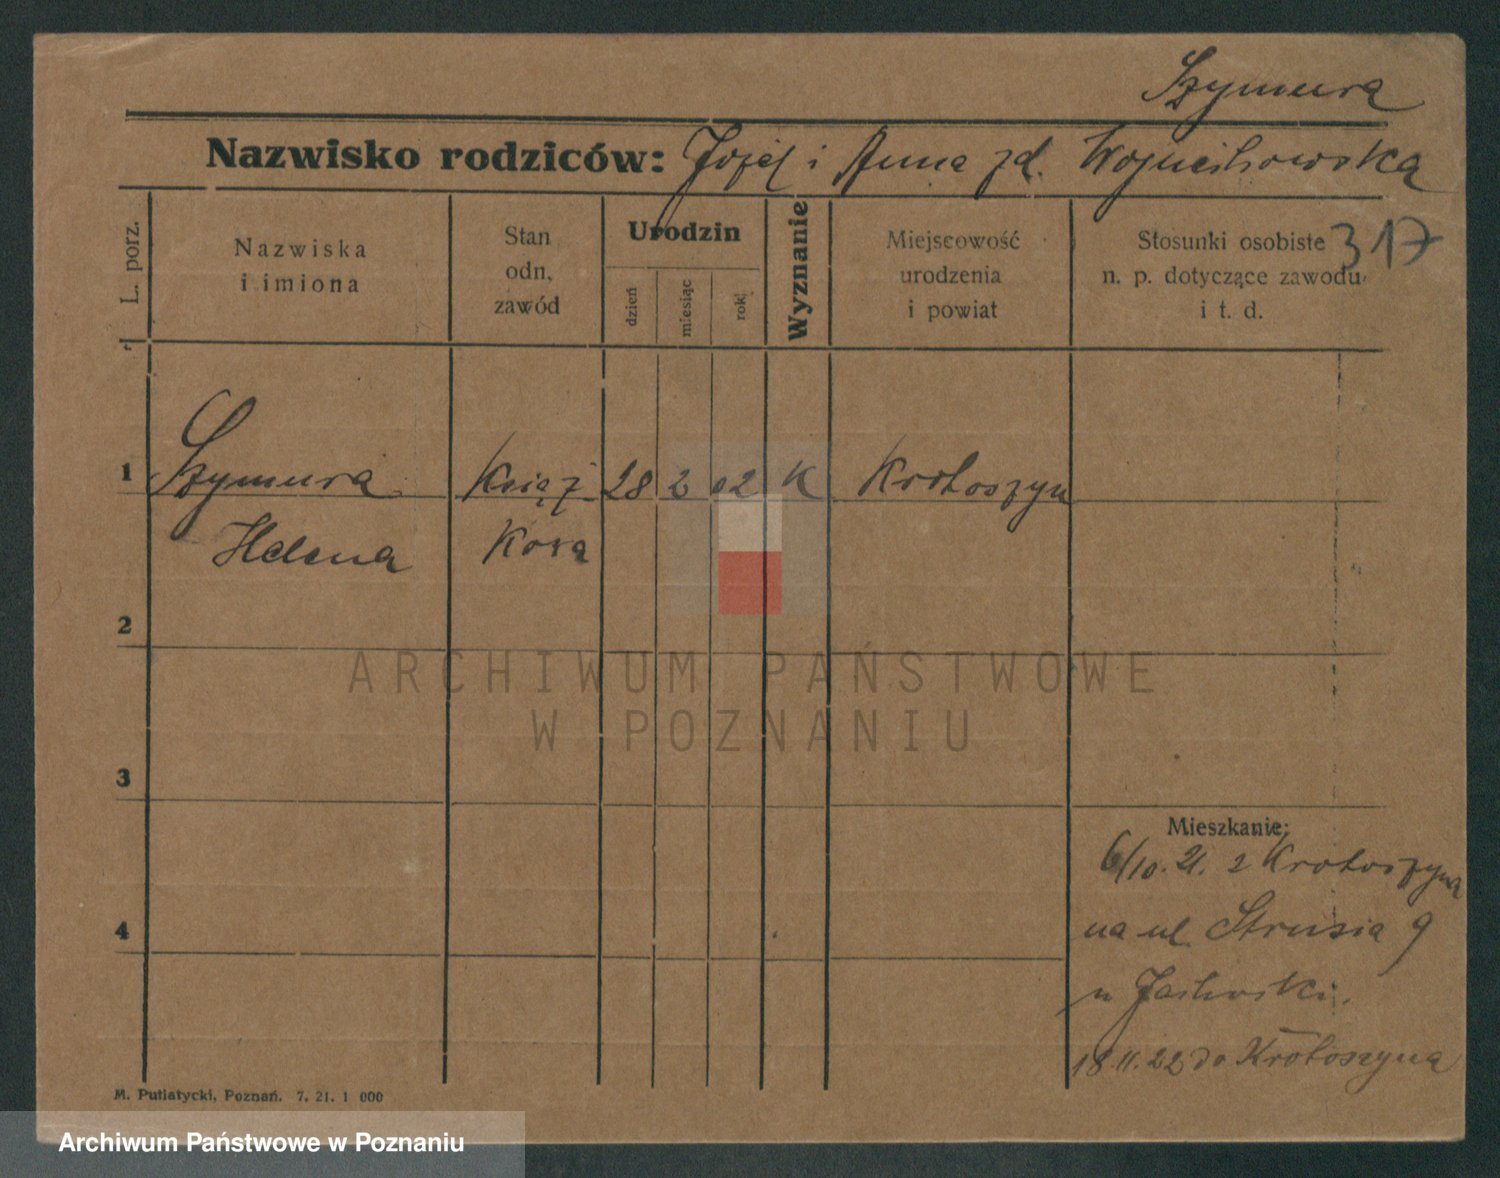 Szymura
Nazwisko rodziców: Józef i Anna zd. Wojciechowska
L. porz.
Nazwiska
i imiona
Stan
odn,
zawód
Urodzin
dzień
miesiąc
rok
Wyznanie
Miejscowość
urodzenia
i powiat
Stosunki osobiste
n. p. dotyczące zawodu
i t. d.
317
1
Szymura
Helena
Książ
kowa
28
2
02
K
Krotoszyn
2
3
4
Mieszkanie:
6/10. 21. z Krotoszyna
na ul. Strusia 9
u
18.11.22 do Krotoszyna
M. Putiatycki, Poznań. 7, 21. 1 000
ARCHIWUM PAŃSTWOWE
W POZNANIU
Archiwum Państwowe w Poznaniu